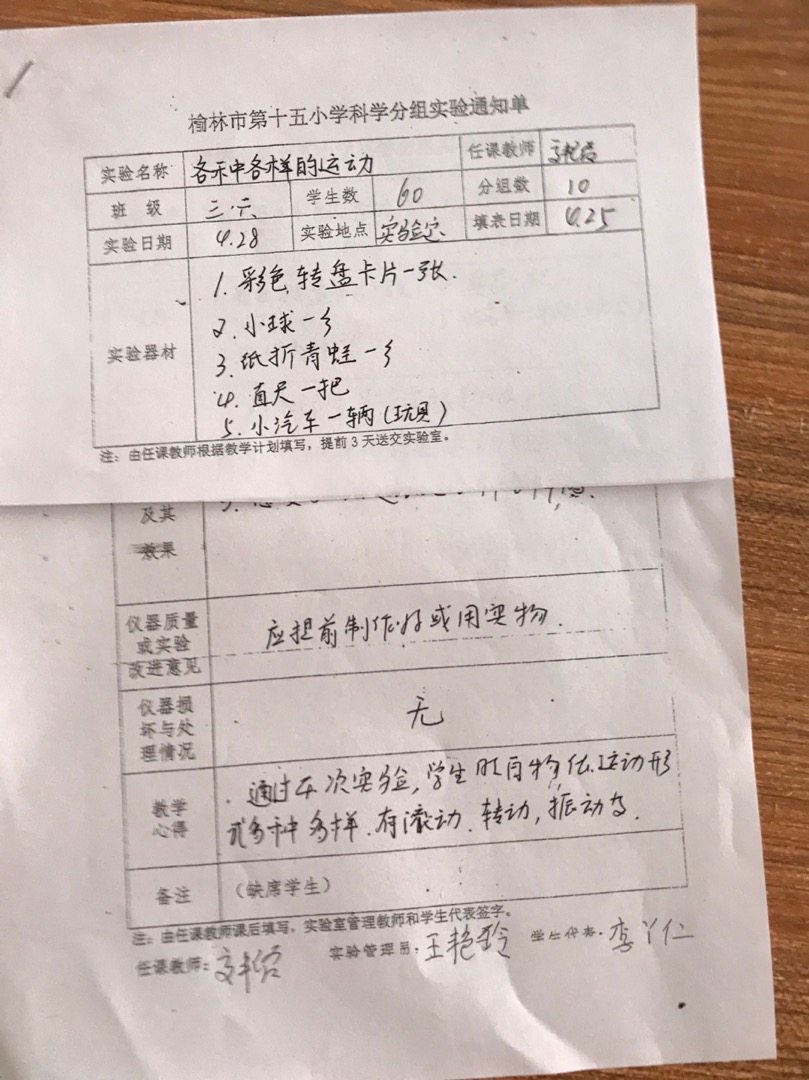 榆林市第十五小学科学分组实验通知单
实验名称 各种各样的运动 任课教师
班 级 三.六 学生数 60 分组数 10
实验日期 4.28 实验地点 实验室 填表日期 4.25
实验器材
1. 彩色转盘卡片一张.
2. 小球一个
3. 纸折青蛙一个
4. 直尺一把
5. 小汽车一辆(玩具)
注：由任课教师根据教学计划填写，提前3天送交实验室。
及其
效果
仪器质量
或实验
改进意见
应提前制作好或用实物.
仪器损
坏与处
理情况
无
教学
心得
通过本次实验,学生明白物体运动形
式多种多样.有滚动.转动,振动等.
备注 （缺席学生）
注：由任课教师课后填写，实验室管理教师和学生代表签字。
任课教师： 实验管理员：王艳玲 学生代表： 李丫仁